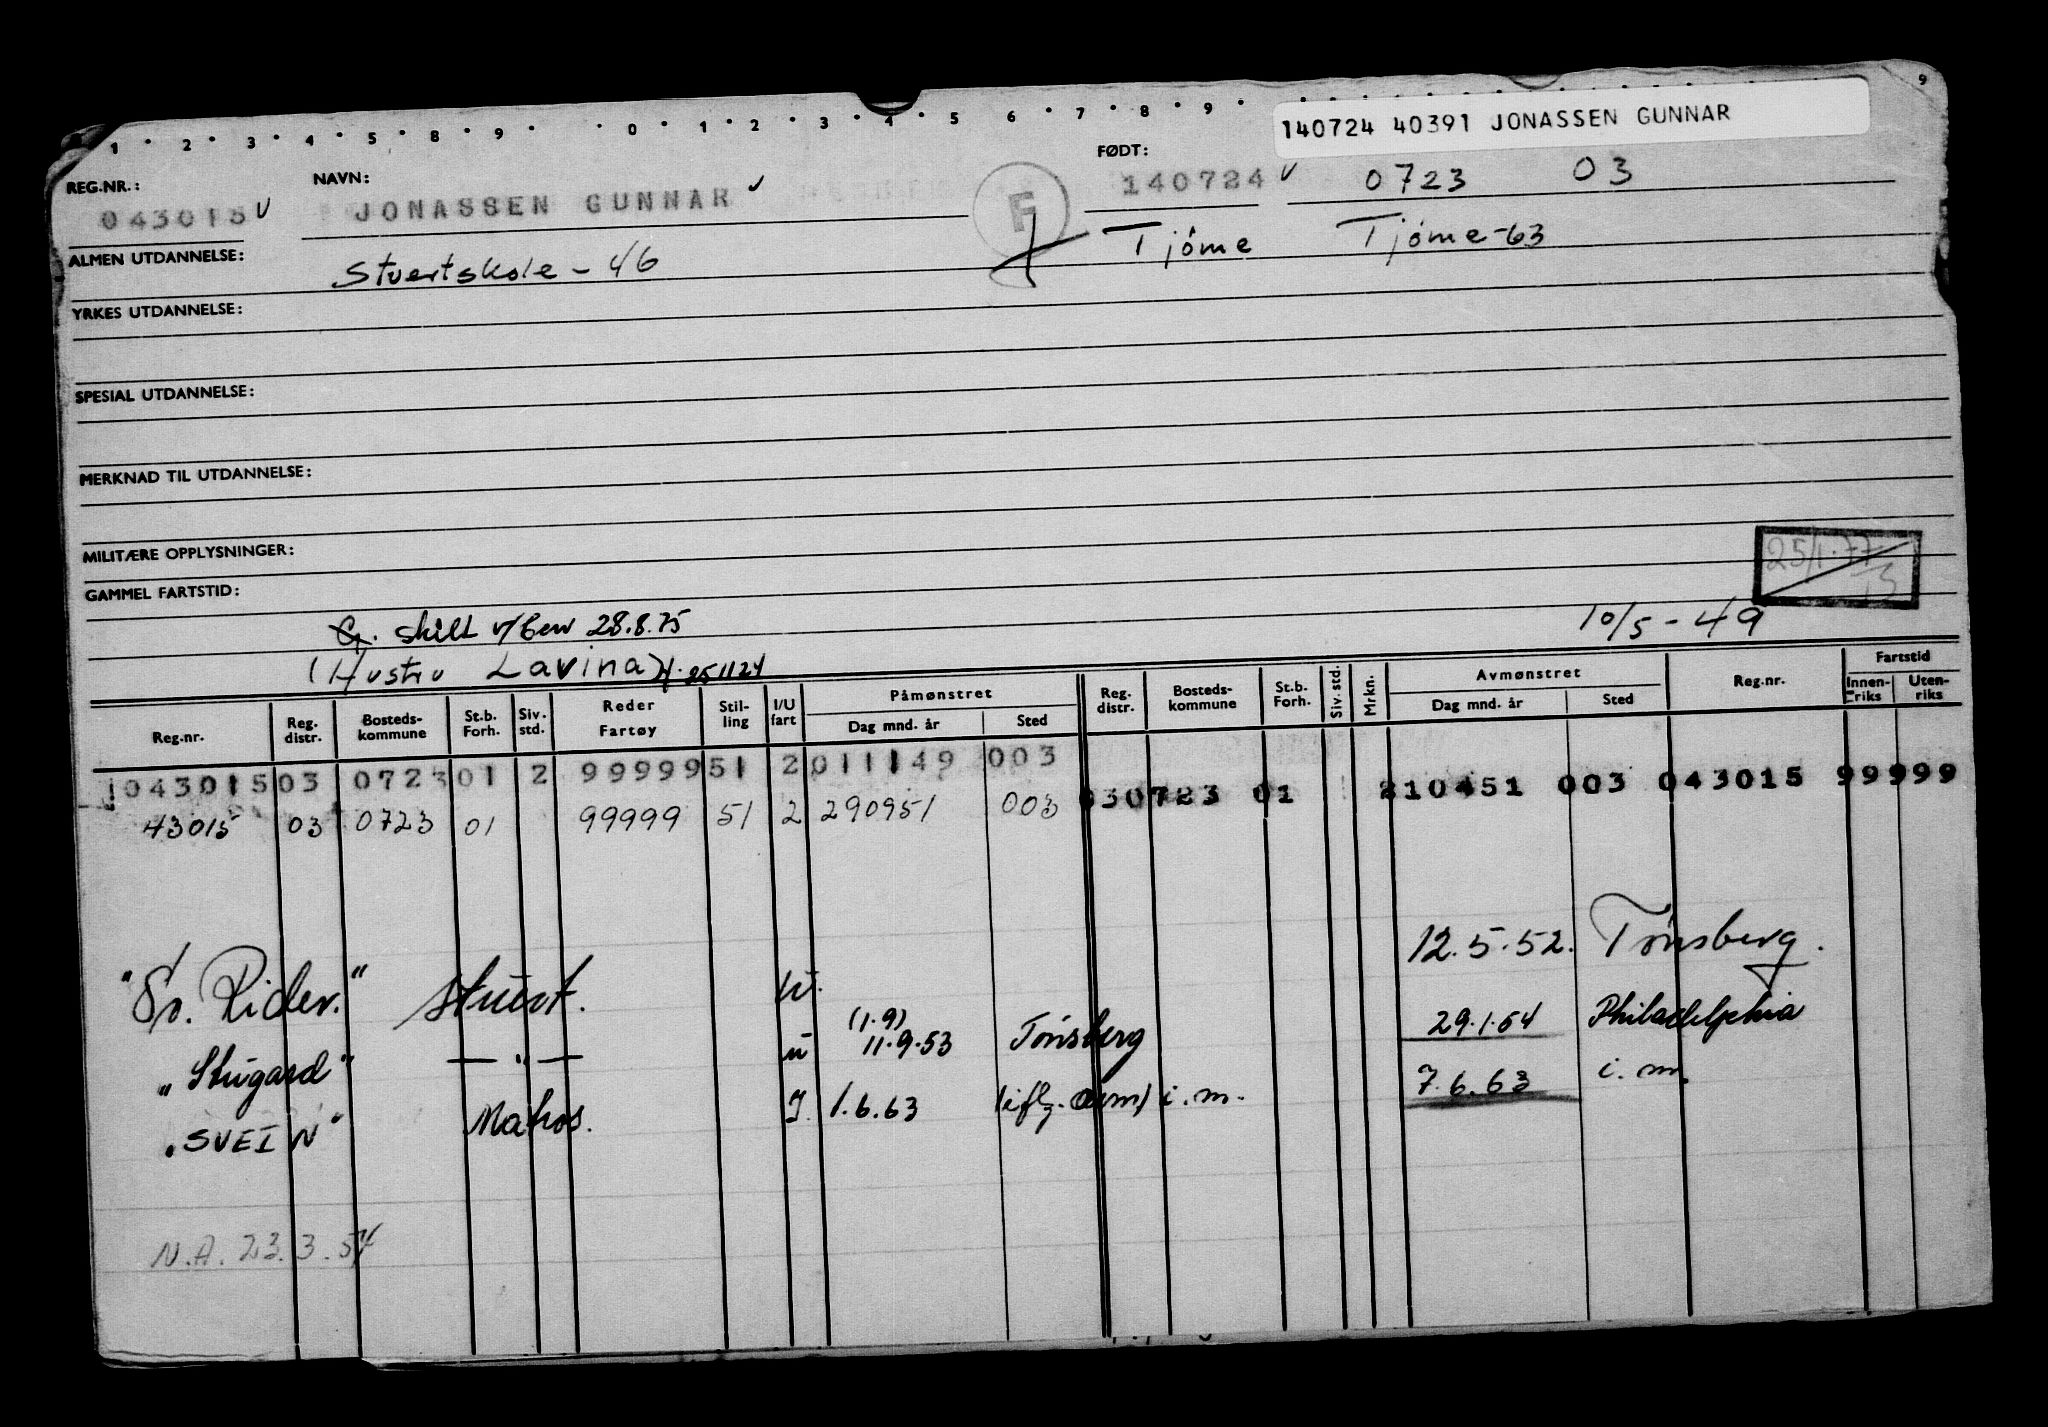 1 2 3 4 5 8 9 0 1 2 3 4 5 6 7 8 9 9
140724 40391 JONASSEN GUNNAR
REG.NR.: NAVN: FØDT:
043015 JONASSEN GUNNAR F 140724 0723 03
ALMEN UTDANNELSE: Stuertskole - 46 Tjøme Tjøme-63
YRKES UTDANNELSE:
SPESIAL UTDANNELSE:
MERKNAD TIL UTDANNELSE:
MILITÆRE OPPLYSNINGER: 25/1-77
GAMMEL FARTSTID:
G. skilt v/bew 28.8.75 10/5-49
(Hustru Lavina H. 251124
Reg.nr. Reg. distr. Bosteds-kommune St.b. Forh. Siv. std. Reder Fartøy Stil-ling I/U fart Påmønstret Dag mnd. år Sted Reg. distr. Bosteds-kommune St.b. Forh. Siv. std. Mrkn. Avmønstret Dag mnd. år Sted Reg.nr. Fartstid Innen-riks Uten-riks
043015 03 0723 01 2 99999 51 2 011149 003 030723 01 210451 003 043015 99999
43015 03 0723 01 99999 51 2 290951 003
12.5.52. Tønsberg.
"Sv. Rider." stuert. U.
"Stugard" — " — u (1.9) 11.9.53 Tønsberg 29.1.54 Philadelphia
"SVEIN" Matros. I. 1.6.63 i.m. 7.6.63 i.m.
N.A. 23.3.54